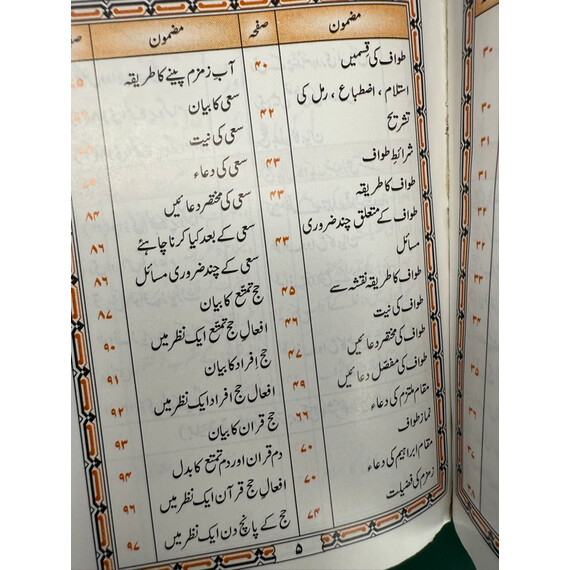 ۳۰
۳۰
۳۱
۳۱
۳۲
۳۲
مضمون صفحہ
طواف کی قسمیں ۴۰
استلام ، اضطباع ، رمل کی
تشریح ۴۲
شرائط طواف ۴۳
طواف کا طریقہ ۴۳
طواف کے متعلق چند ضروری
مسائل ۴۳
طواف کا طریقہ نقشہ سے ۴۵
طواف کی نیت ۴۶
طواف کی مختصر دعائیں ۴۷
طواف کی مفصل دعائیں ۴۹
مقام ملتزم کی دعاء ۶۶
نماز طواف ۷۰
مقام ابراہیم کی دعاء ۷۰
زمزم کی فضیلت ۷۴
مضمون
آب زمزم پینے کا طریقہ
سعی کا بیان
سعی کی نیت
سعی کی دعاء
سعی کی مختصر دعائیں ۸۴
سعی کے بعد کیا کرنا چاہئے ۸۶
سعی کے چند ضروری مسائل ۸۶
حج تمتع کا بیان ۸۷
افعال حج تمتع ایک نظر میں ۹۰
حج افراد کا بیان ۹۱
افعال حج افراد ایک نظر میں ۹۲
حج قران کا بیان ۹۳
دم قران اور دم تمتع کا بدل ۹۴
افعال حج قرآن ایک نظر میں ۹۶
حج کے پانچ دن ایک نظر میں ۹۷
۵